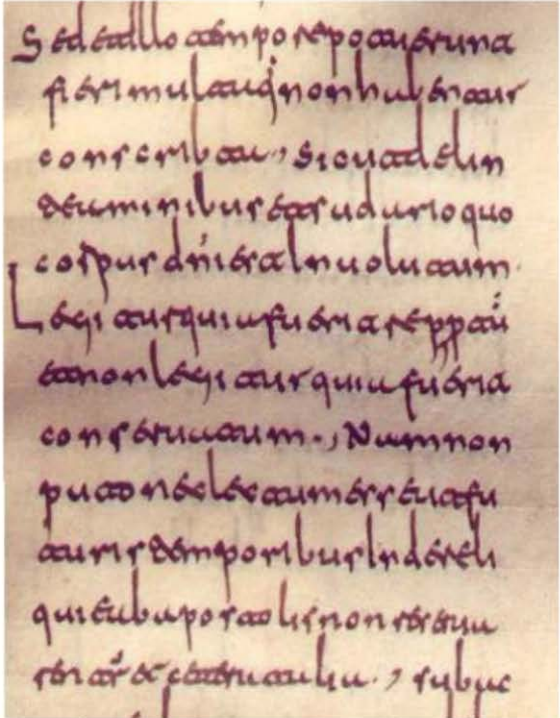 Sed et illo tempore potuerunt
fieri multa q non habentur
conscribta, sicut de lin
teaminibus et sudario quo
corpus dni est inuolutum.
Legitur quia fuerit reppertu
et non legitur quia fuerit
conseruatum., Nam non
puto neclectum esse ut fu
turis temporibus inde reli
quie ab apostolis non reserua
rent et cetera talia.,